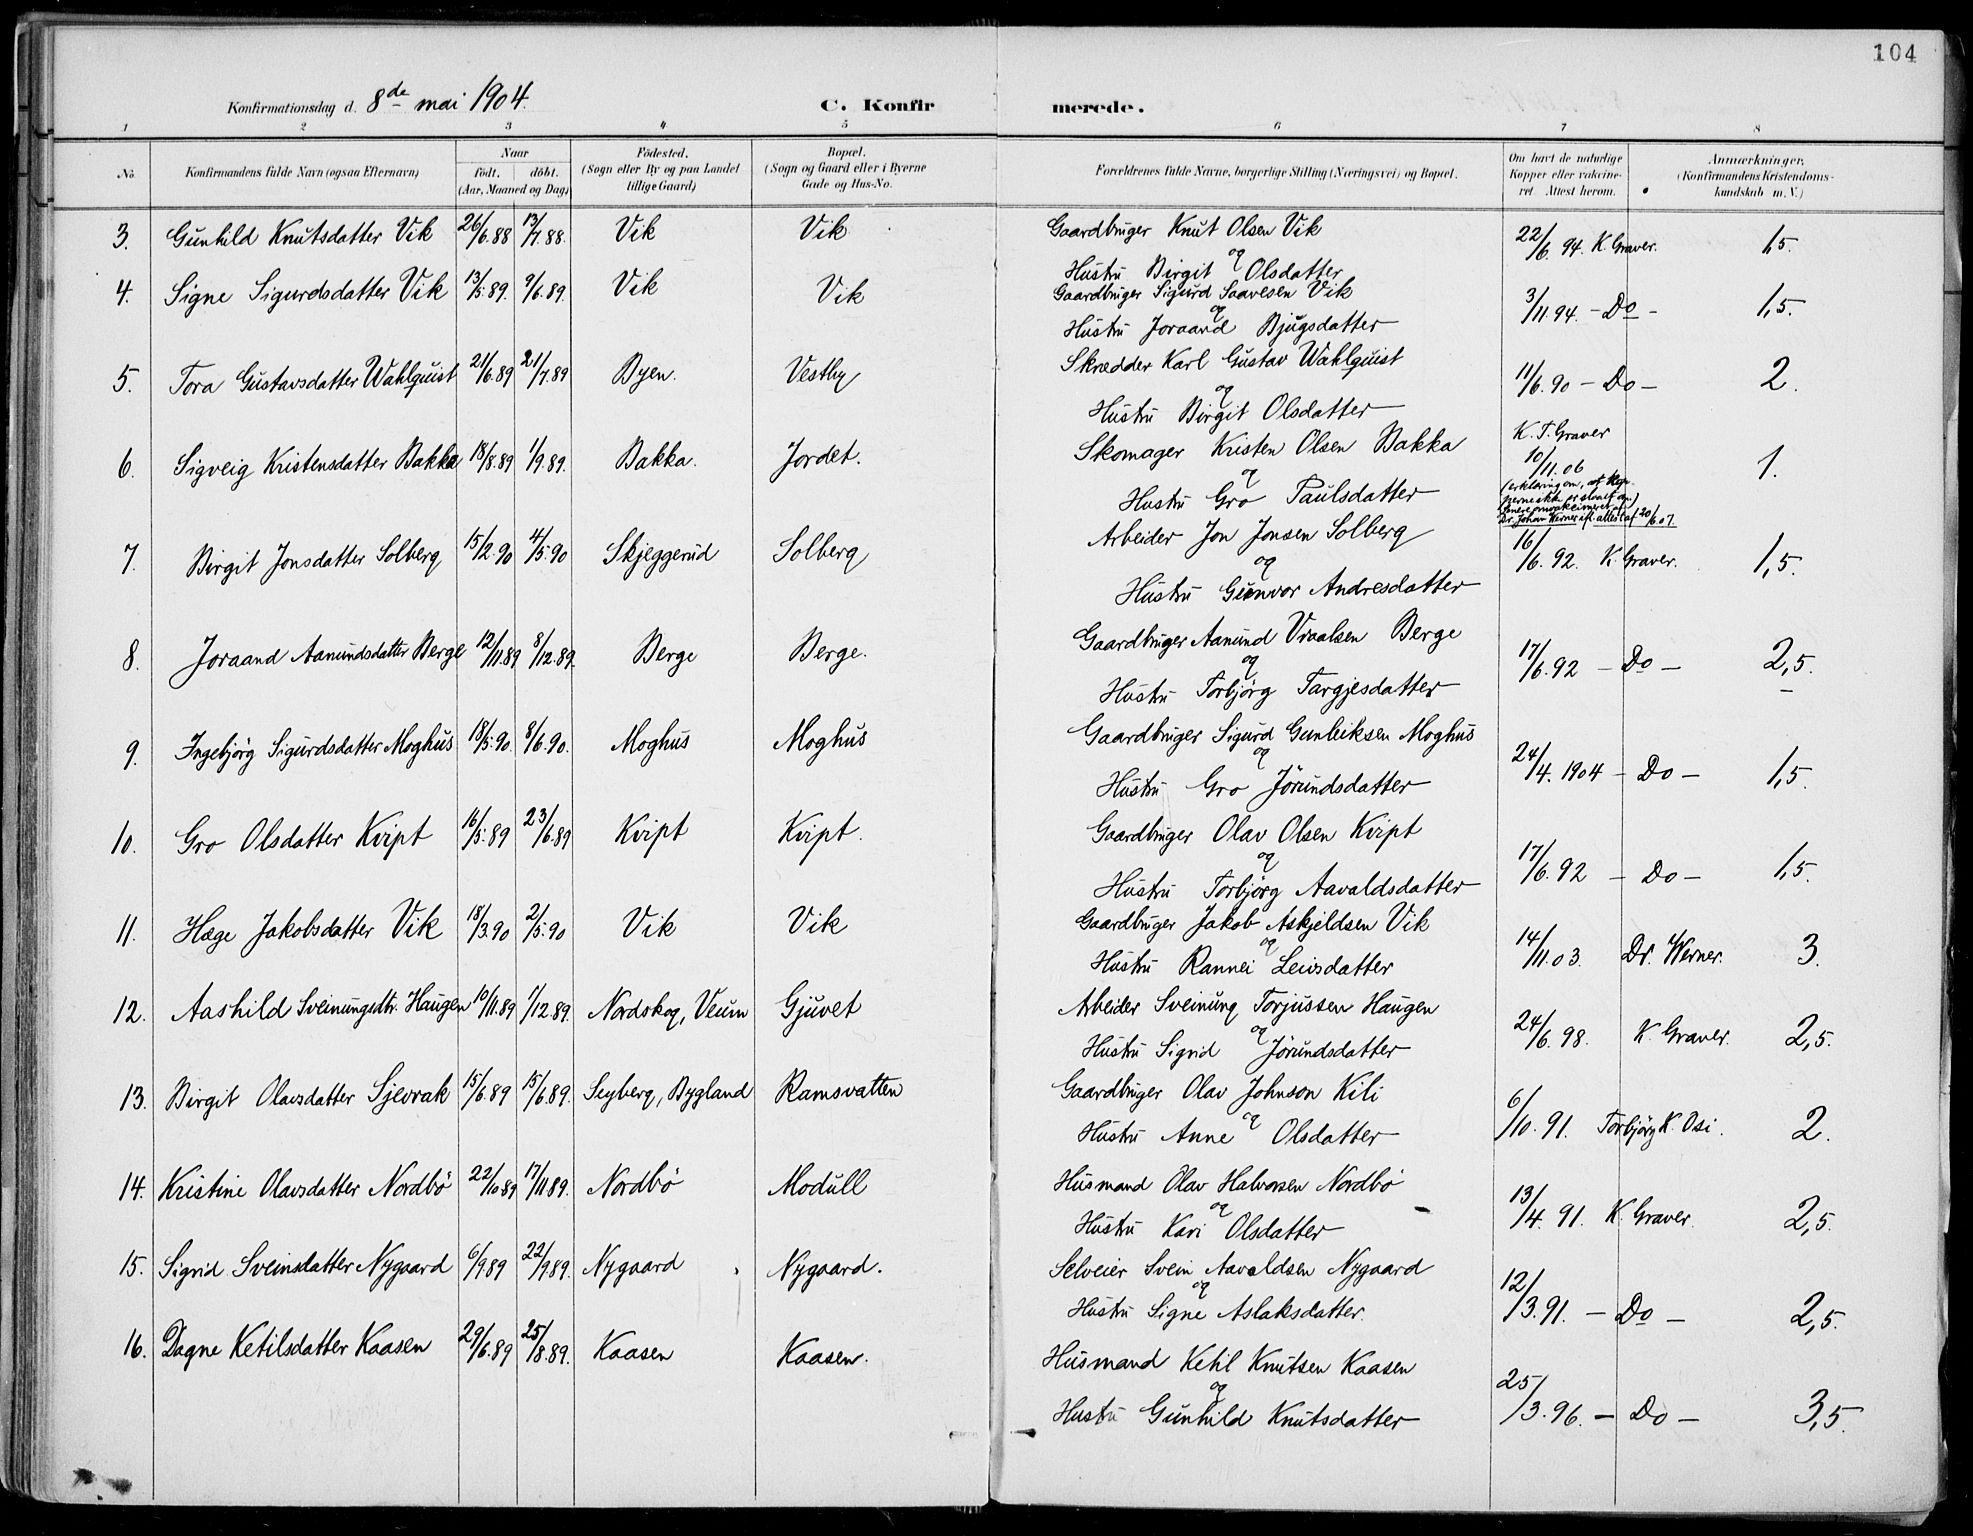 104
Konfirmationsdag d. 8de mai 1904.
C. Konfirmerede.
1 2 3 4 5 6 7 8
No.
Konfirmandens fulde Navn (ogsaa Efternavn)
Naar
født. døbt.
(Aar, Maaned og Dag)
Fødested.
(Sogn eller By og paa Landet
tillige Gaard)
Bopæl.
(Sogn og Gaard eller i Byerne
Gade og Hus-No.
Forældrenes fulde Navne, borgerlige Stilling (Næringsvei) og Bopæl.
Om havt de naturlige
Kopper eller vakcine-
ret. Attest herom.
Anmærkninger.
(Konfirmandens Kristendoms-
kundskab m. V.)
3. Gunhild Knutsdatter Vik 26/6.88 13/7.88. Vik Vik Gaardbruger Knut Olsen Vik 22/6.94 K. Graver. 1,5.
og
Hustru Birgit Olsdatter
4. Signe Sigurdsdatter Vik 13/5.89. 9/6.89. Vik Vik Gaardbruger Sigurd Saavesen Vik 3/11.94. – Do – 1,5.
og
Hustru Joraand Bjugsdatter
5. Tora Gustavsdatter Wahlquist 21/6.89 21/7.89 Byen. Vestby Skrædder Karl Gustav Wahlquist 11/6.90 – Do – 2.
og
Hustru Birgit Olsdatter
6. Sigveig Kristensdatter Bakka 18/8.89 1/9.89. Bakka. Jordet. Skomager Kristen Olsen Bakka K. T. Graver 1.
10/11.06
og
Hustru Gro Paulsdatter
Dr. Johan Werner 20/6.07
7. Birgit Jonsdatter Solberg 15/2.90 4/5.90 Skjeggerud Solberg Arbeider Jon Jonsen Solberg 16/6.92. K. Graver. 1,5.
og
Hustru Gunvor Andresdatter
8. Joraand Aanundsdatter Berge 12/11.89 8/12.89. Berge Berge. Gaardbruger Aanund Vraalsen Berge 17/6.92 – Do – 2,5.
og
Hustru Torbjörg Targjesdatter
9. Ingebjörg Sigurdsdatter Moghus 18/5.90. 8/6.90. Moghus Moghus Gaardbruger Sigurd Gunleiksen Moghus 24/4.1904 – Do – 1,5.
og
Hustru Gro Jörundsdatter
10. Gro Olsdatter Kvipt 16/5.89 23/6.89 Kvipt Kvipt. Gaardbruger Olav Olsen Kvipt 17/6.92 – Do – 1,5.
og
Hustru Torbjörg Aavaldsdatter
11. Hæge Jakobsdatter Vik 18/3.90 2/5.90 Vik Vik Gaardbruger Jakob Askjeldsen Vik 14/11.03. Dr. Werner. 3.
og
Hustru Rannei Leivsdatter
12. Aashild Sveinungsdtr. Haugen 10/11.89 1/12.89. Nordskog, Veum Gjuvet Arbeider Sveinung Torjussen Haugen 24/6.98. K. Graver. 2,5.
og
Hustru Sigrid Jörundsdatter
13. Birgit Olavsdatter Sjevrak 15/6.89 15/6.89. Seyberg, Bygland Ramsvatten Gaardbruger Olav Johnson Kili 6/10.91. Torbjörg K. Osi. 2.
og
Hustru Anne Olsdatter
14. Kristine Olavsdatter Nordbö 22/10.89 17/11.89. Nordbö Modull Husmand Olav Halvorsen Nordbö 13/4.91. K. Graver. 2,5.
og
Hustru Kari Olsdatter
15. Sigrid Sveinsdatter Nygaard 6/9.89 22/9.89. Nygaard Nygaard. Selveier Svein Aavaldsen Nygaard 12/3.91. – Do – 2,5.
og
Hustru Signe Aslaksdatter.
16. Dagne Ketilsdatter Kaasen 29/6.89 25/8.89. Kaasen Kaasen. Husmand Ketil Knutsen Kaasen 25/3.96. – Do – 3,5.
og
Hustru Gunhild Knutsdatter